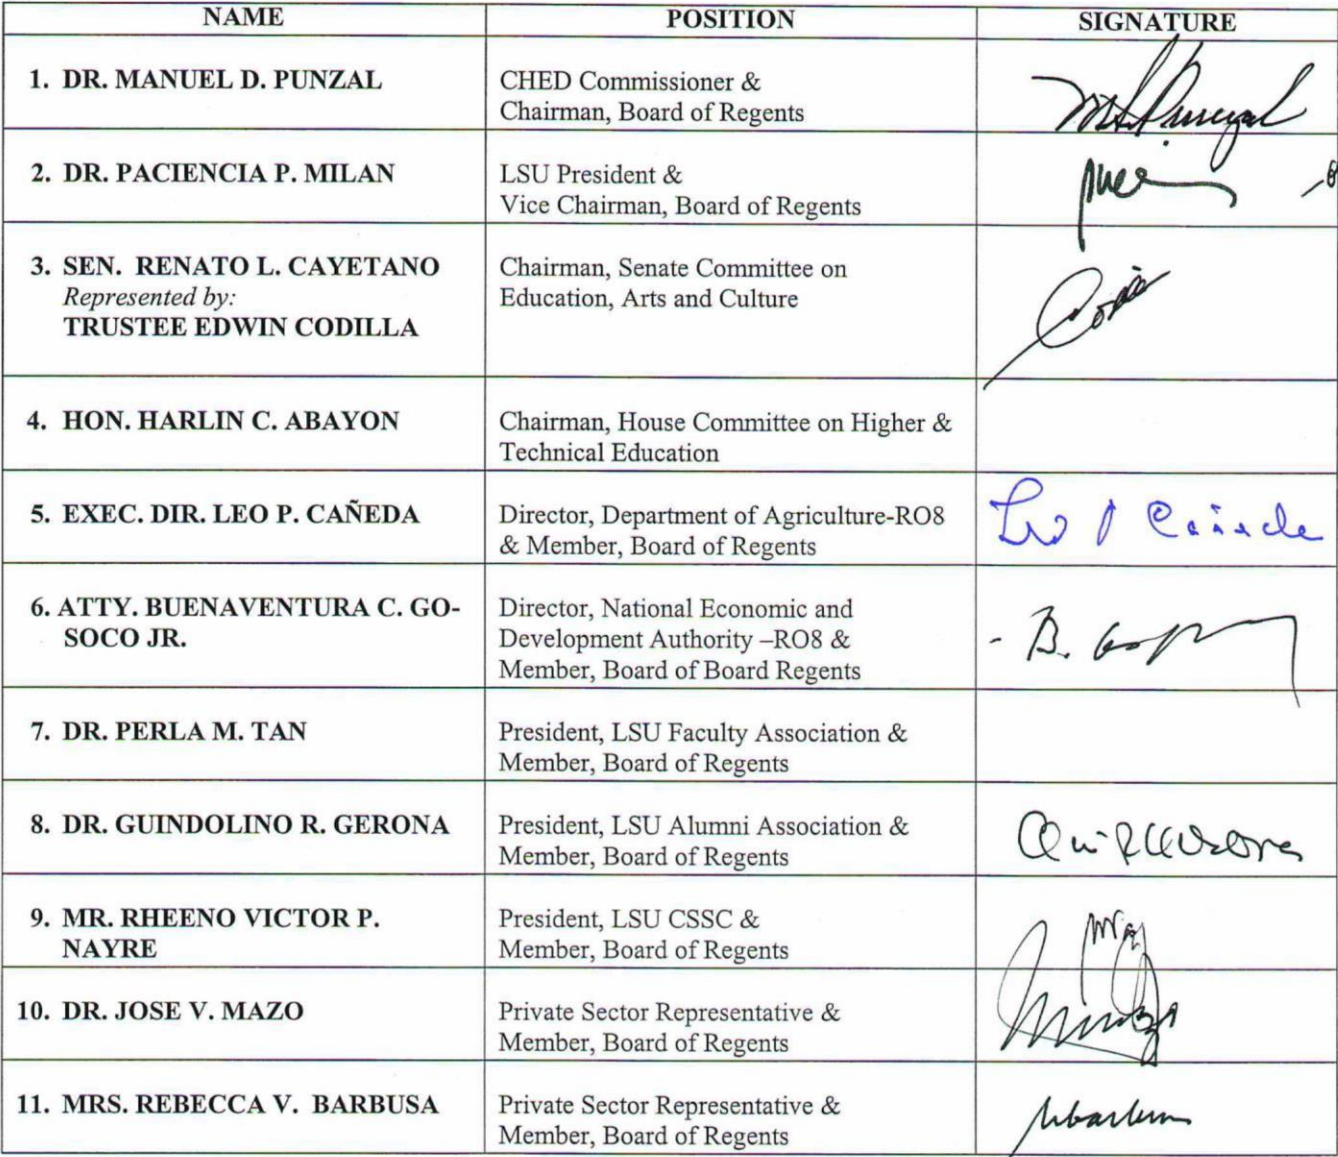 NAME POSITION SIGNATURE
1. DR. MANUEL D. PUNZAL
CHED Commissioner &
Chairman, Board of Regents
2. DR. PACIENCIA P. MILAN
LSU President &
Vice Chairman, Board of Regents
3. SEN. RENATO L. CAYETANO
Represented by:
TRUSTEE EDWIN CODILLA
Chairman, Senate Committee on
Education, Arts and Culture
4. HON. HARLIN C. ABAYON
Chairman, House Committee on Higher &
Technical Education
5. EXEC. DIR. LEO P. CAÑEDA
Director, Department of Agriculture-RO8
& Member, Board of Regents
Leo P Cañeda
6. ATTY. BUENAVENTURA C. GO-
SOCO JR.
Director, National Economic and
Development Authority –RO8 &
Member, Board of Board Regents
7. DR. PERLA M. TAN
President, LSU Faculty Association &
Member, Board of Regents
8. DR. GUINDOLINO R. GERONA
President, LSU Alumni Association &
Member, Board of Regents
9. MR. RHEENO VICTOR P.
NAYRE
President, LSU CSSC &
Member, Board of Regents
10. DR. JOSE V. MAZO
Private Sector Representative &
Member, Board of Regents
11. MRS. REBECCA V. BARBUSA
Private Sector Representative &
Member, Board of Regents